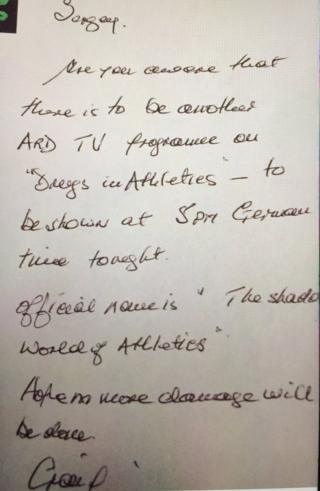 Sergey.
Are you aware that
there is to be another
ARD TV programme on
"Drugs in Athletics" – to
be shown at 8pm German
time tonight.
Official name is " The shado
World of Athletics".
Hope no more damage will
be done.
Craig